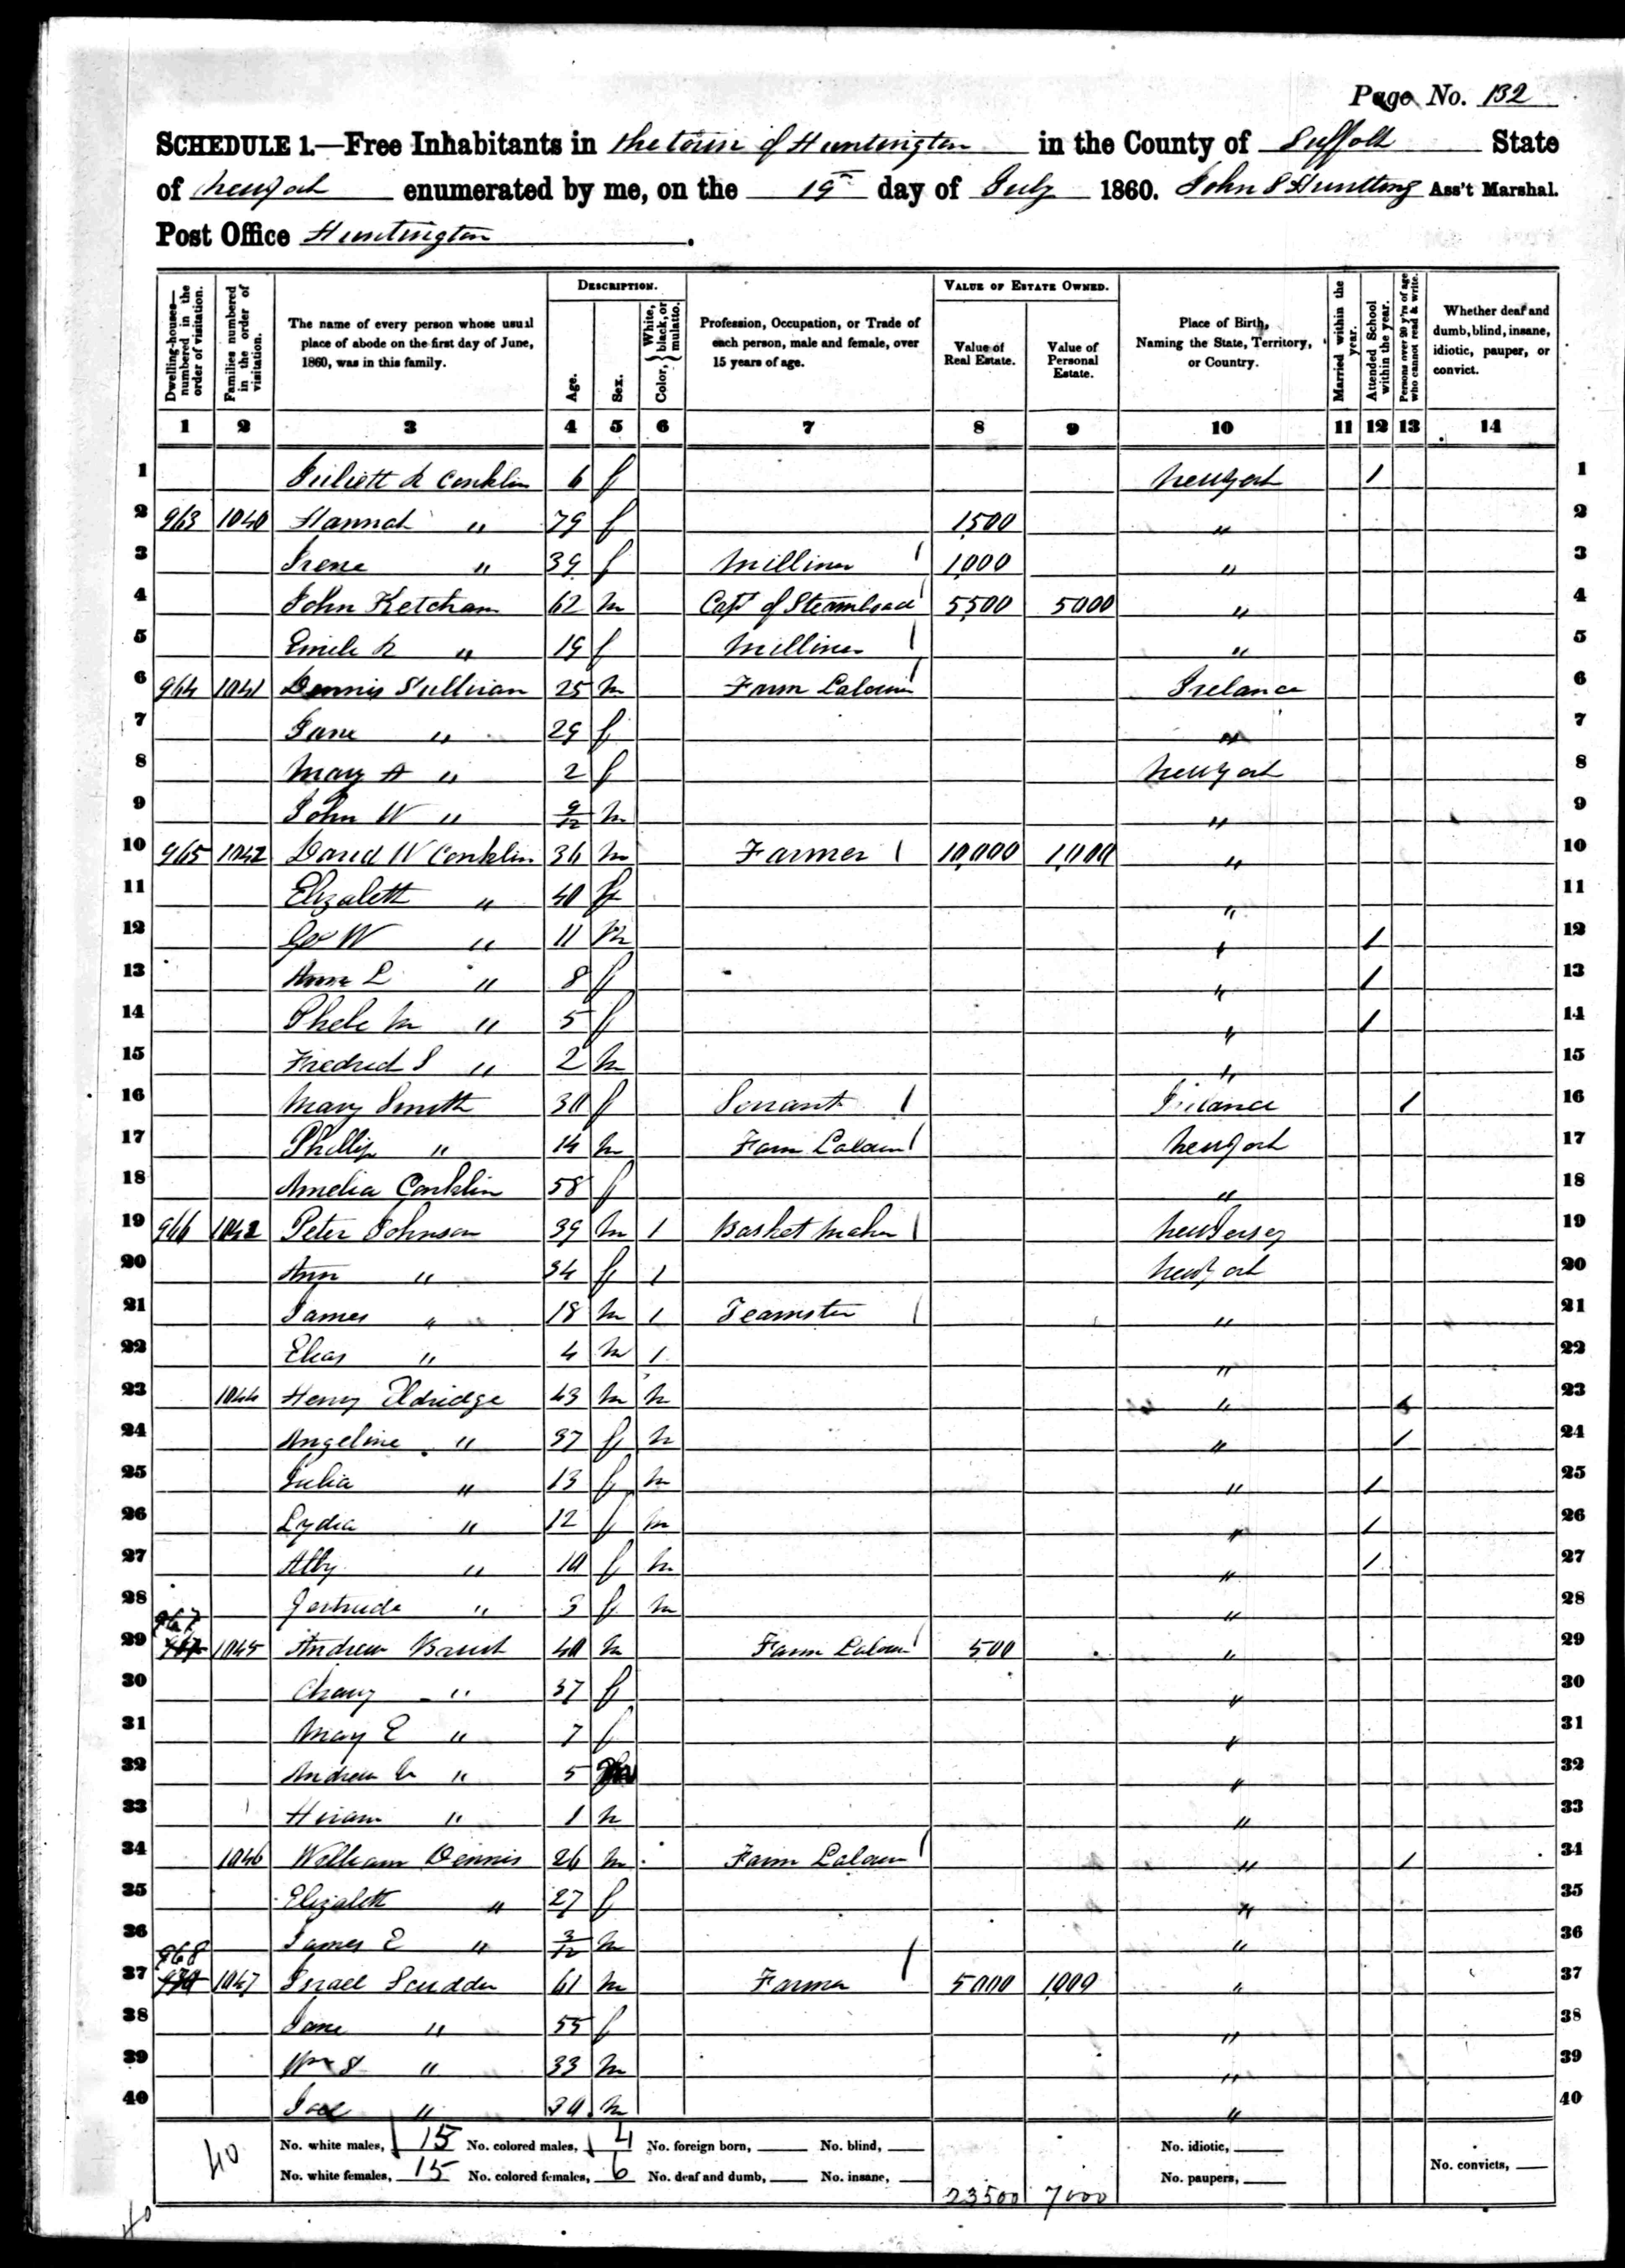 Page No. 132
SCHEDULE 1.—Free Inhabitants in the town of Huntington in the County of Suffolk State
of New York enumerated by me, on the 19th day of July 1860. John S Huntting Ass't Marshal.
Post Office Huntington.
Dwelling-houses—numbered in the order of visitation. Families numbered in the order of visitation. The name of every person whose usual place of abode on the first day of June, 1860, was in this family. DESCRIPTION. Age. Sex. Color, White, black, or mulatto. Profession, Occupation, or Trade of each person, male and female, over 15 years of age. VALUE OF ESTATE OWNED. Value of Real Estate. Value of Personal Estate. Place of Birth, Naming the State, Territory, or Country. Married within the year. Attended School within the year. Persons over 20 y'rs of age who cannot read & write. Whether deaf and dumb, blind, insane, idiotic, pauper, or convict.
1 2 3 4 5 6 7 8 9 10 11 12 13 14
1 Juliett Conklin 6 f New York 1 1
2 963 1040 Hannah " 79 f 1500 " 2
3 Irene " 39 f Milliner 1 1000 " 3
4 John Ketcham 62 m Capt of Steamboat 1 5500 5000 " 4
5 " 19 f Milliner 1 " 5
6 964 1041 Dennis Sullivan 25 m Farm Laborer 1 Ireland 6
7 Jane " 29 f " 7
8 Mary A " 2 f New York 8
9 John W " 9/12 m " 9
10 965 1042 David W Conklin 36 m Farmer 1 10,000 1,000 " 10
11 Elizabeth " 40 f " 11
12 Geo W " 11 m " 1 12
13 Anna L " 8 f " 1 13
14 Phebe M " 5 f " 1 14
15 Fredrick S " 2 m " 15
16 Mary Smith 30 f Servant 1 Ireland 1 16
17 Phillip " 14 m Farm Laborer 1 New York 17
18 Amelia Conklin 58 f " 18
19 966 1043 Peter Johnson 39 m 1 Basket Maker 1 New Jersey 19
20 Ann " 34 f 1 New York 20
21 James " 18 m 1 Teamster 1 " 21
22 Elias " 4 m 1 " 22
23 1044 Henry Eldridge 43 m m " 1 23
24 Angeline " 37 f m " 1 24
25 Julia " 13 f m " 1 25
26 Lydia " 12 f m " 1 26
27 Alby " 10 f m " 1 27
28 Gertrude " 3 f m " 28
29 967 1045 Andrew Brush 40 m Farm Laborer 1 500 " 29
30 " 37 f " 30
31 Mary E " 7 f " 31
32 Andrew " 5 m " 32
33 Hiram " 1 m " 33
34 1046 William Dennis 26 m Farm Laborer 1 " 1 34
35 Elizabeth " 27 f " 35
36 James E " 3/12 m " 36
37 968 1047 Israel Scudder 61 m Farmer 1 5000 1000 " 37
38 Jane " 55 f " 38
39 Wm S " 33 m " 39
40 Joel " 30 m " 40
40 No. white males, 15 No. colored males, 4 No. foreign born, No. blind, No. idiotic,
No. white females, 15 No. colored females, 6 No. deaf and dumb, No. insane, No. paupers, No. convicts,
23500 7000
40